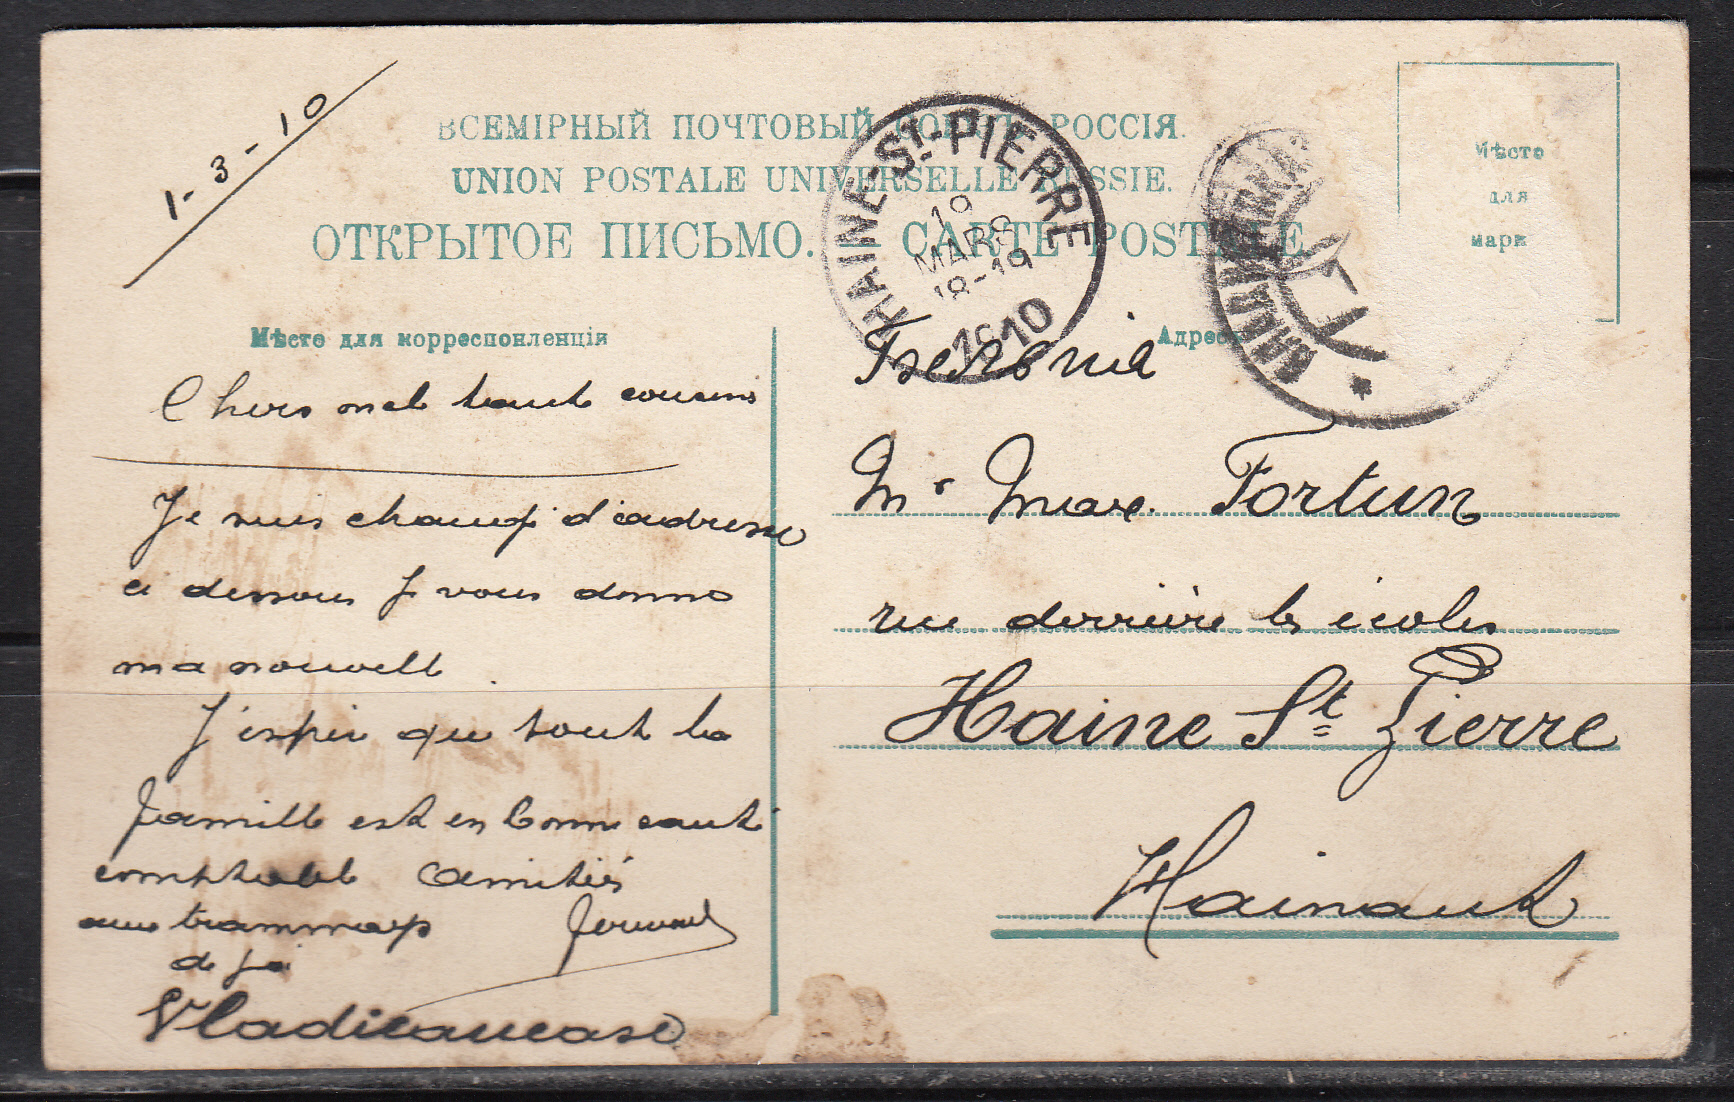 1-3-10
ВСЕМІРНЫЙ ПОЧТОВЫЙ СОЮЗЪ. РОССІЯ.
UNION POSTALE UNIVERSELLE RUSSIE.
ОТКРЫТОЕ ПИСЬМО. — CARTE POSTALE
Мѣсто
для
марк
HAINE-St-PIERRE
19
MARS
18-19
1910
ВЛАДИКАВКАЗ
Мѣсто для корреспонденціи
Адрес
Chers et tout cousins
Je suis changé d'adresse
ci dessous je vous donne
ma nouvell
J'espèr que tout la
famille est en bonne santé
comptable amitiés
aux tramways Fernand
de
Vladicaucase
Mr Max Fortun
rue derrière les écoles
Haine St Pierre
Hainaut